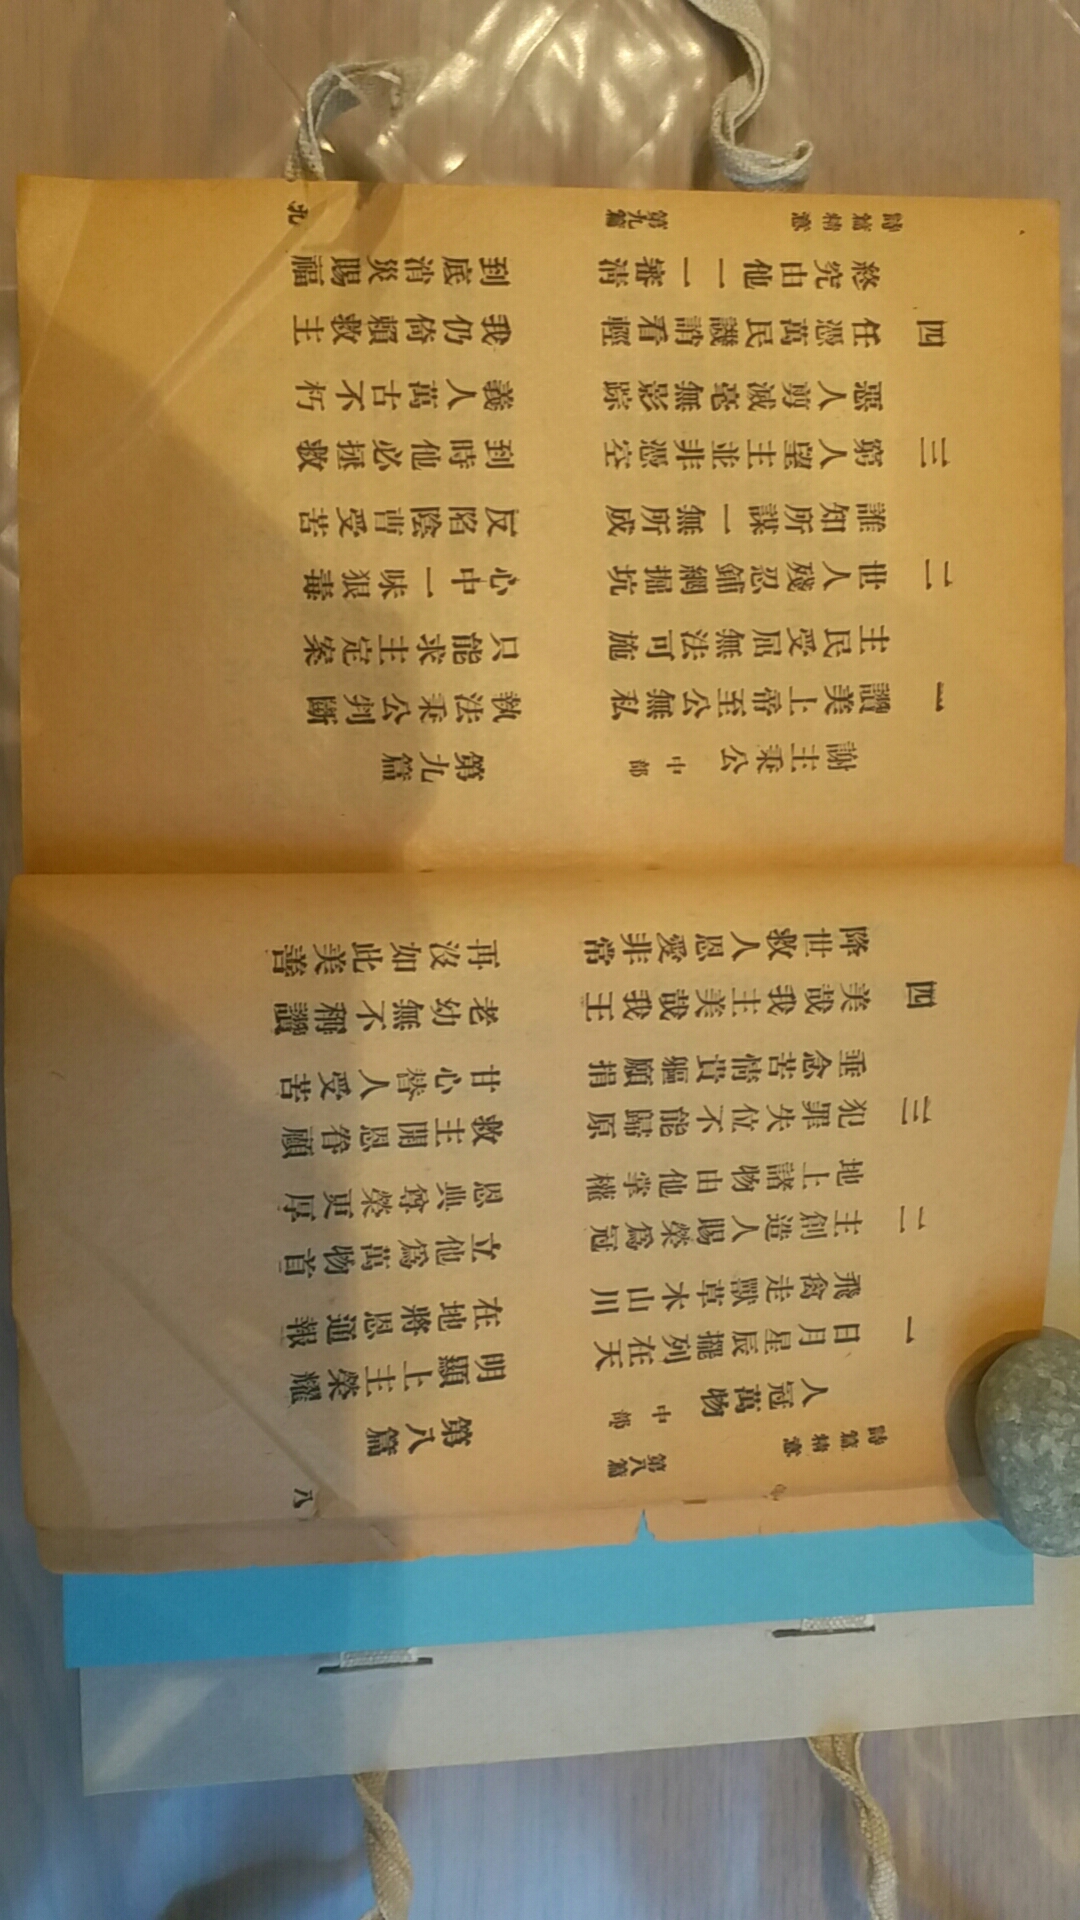 詩篇精意 第八篇 八
人冠萬物 中部 第八篇
一 日月星辰擺列在天 明顯上主榮耀
飛禽走獸草木山川 在地將恩通報
二 主創造人賜榮爲冠 立他爲萬物首
地上諸物由他掌權 恩典尊榮更厚
三 犯罪失位不能歸原 救主開恩眷顧
垂念苦情貴軀願捐 甘心替人受苦
四 美哉我主美哉我王 老幼無不稱讚
降世救人恩愛非常 再沒如此美善
謝主秉公 中部 第九篇
一 讚美上帝至公無私 執法秉公判斷
主民受屈無法可施 只能求主定案
二 世人殘忍鋪網掘坑 心中一味狠毒
誰知所謀一無所成 反陷陰曹受苦
三 窮人望主並非憑空 到時他必拯救
惡人剪滅毫無影踪 義人萬古不朽
四 任憑萬民譏誚看輕 我仍倚賴救主
終究由他一一審清 到底消災賜福
詩篇精意 第九篇 九